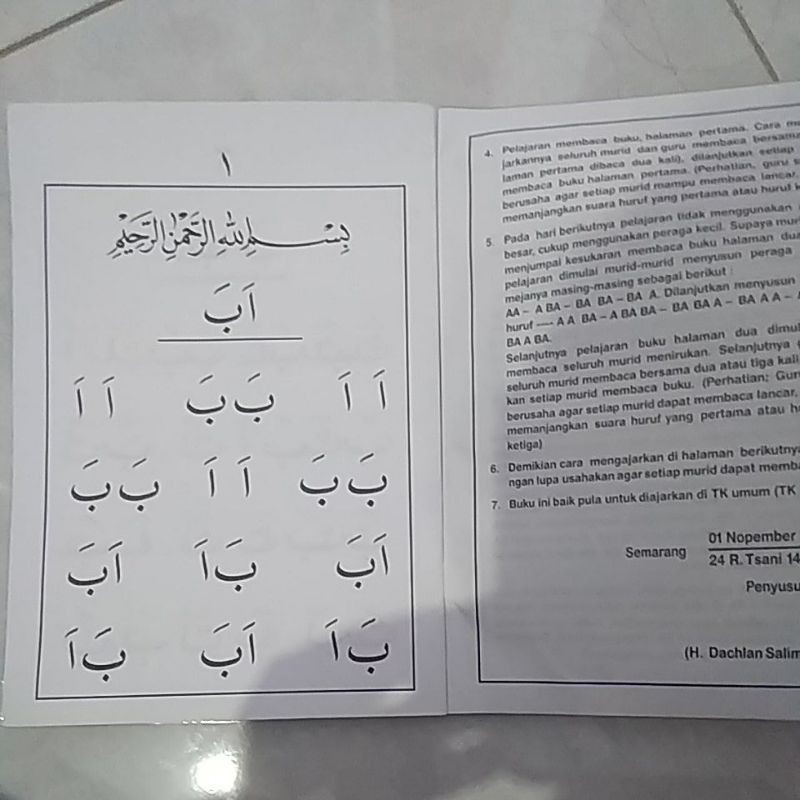 ١
بِسْمِ اللهِ الرَّحْمٰنِ الرَّحِيْمِ
اَبَ
اَ اَ بَ بَ اَ اَ
بَ بَ اَ اَ بَ بَ
اَبَ بَ اَ اَبَ
بَ اَ اَبَ بَ اَ
4. Pelajaran membaca buku, halaman pertama. Cara
jarkannya seluruh murid dan guru membaca bersama
laman pertama dibaca dua kali), dilanjutkan setiap
membaca buku halaman pertama. (Perhatian, guru
berusaha agar setiap murid mampu membaca lancar,
memanjangkan suara huruf yang pertama atau huruf
5. Pada hari berikutnya pelajaran tidak menggunakan
besar, cukup menggunakan peraga kecil. Supaya
menjumpai kesukaran membaca buku halaman dua
pelajaran dimulai murid-murid menyusun peraga
mejanya masing-masing sebagai berikut :
AA – A BA – BA BA – BA A. Dilanjutkan menyusun
huruf — A A BA – A BA BA – BA BA A – BA A A –
BA A BA.
Selanjutnya pelajaran buku halaman dua
membaca seluruh murid menirukan. Selanjutnya
seluruh murid membaca bersama dua atau tiga kali
kan setiap murid membaca buku. (Perhatian; Gur
berusaha agar setiap murid dapat membaca lancar,
memanjangkan suara huruf yang pertama atau
ketiga)
6. Demikian cara mengajarkan di halaman berikutnya
ngan lupa usahakan agar setiap murid dapat
7. Buku ini baik pula untuk diajarkan di TK umum (TK
Semarang 01 Nopember
24 R. Tsani 14
Penyusu
(H. Dachlan Salim